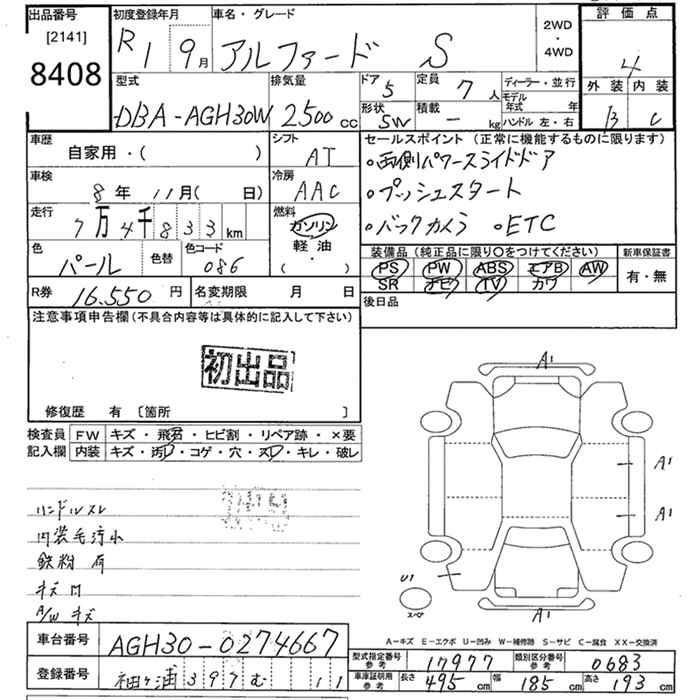 出品番号 [2141] 8408
初度登録年月 R1 9月
車名・グレード アルファード S
2WD・4WD
評価点 4
外装 B 内装 C
型式 DBA-AGH30W
排気量 2500cc
ドア 5 形状 SW
定員 7人 積載 - kg
ディーラー・並行
モデル年式 年
ハンドル 左・右
車歴 自家用・( )
シフト AT
セールスポイント(正常に機能するものに限ります)
・両側パワースライドドア
・プッシュスタート
・バックカメラ ・ETC
車検 8年 11月( 日)
冷房 AAC
走行 7万4千833km
燃料 ガソリン 軽油 ( ・ )
色 パール 色替 色コード 086
装備品(純正品に限り○をつけてください)
PS PW ABS エアB AW
SR ナビ TV カワ
新車保証書 有・無
R券 16.550円 名変期限 月 日
後日品
注意事項申告欄(不具合内容等は具体的に記入して下さい)
初出品
修復歴 有 〔箇所 〕
検査員記入欄
FW キズ・飛石・ヒビ割・リペア跡・×要
内装 キズ・汚れ・コゲ・穴・スレ・キレ・破レ
ハンドルスレ
内装毛汚小
鉄粉有
キズ
A/W キズ
A1
A1
A1
U1
スペア
A1
A-キズ E-エクボ U-凹み W-補修跡 S-サビ C-腐食 XX-交換済
車台番号 AGH30-0274667
登録番号 袖ヶ浦 397 む 11
型式指定番号 参考 17977 類別区分番号 参考 0683
車庫証明用 参考 長さ 495cm 幅 185cm 高さ 193cm